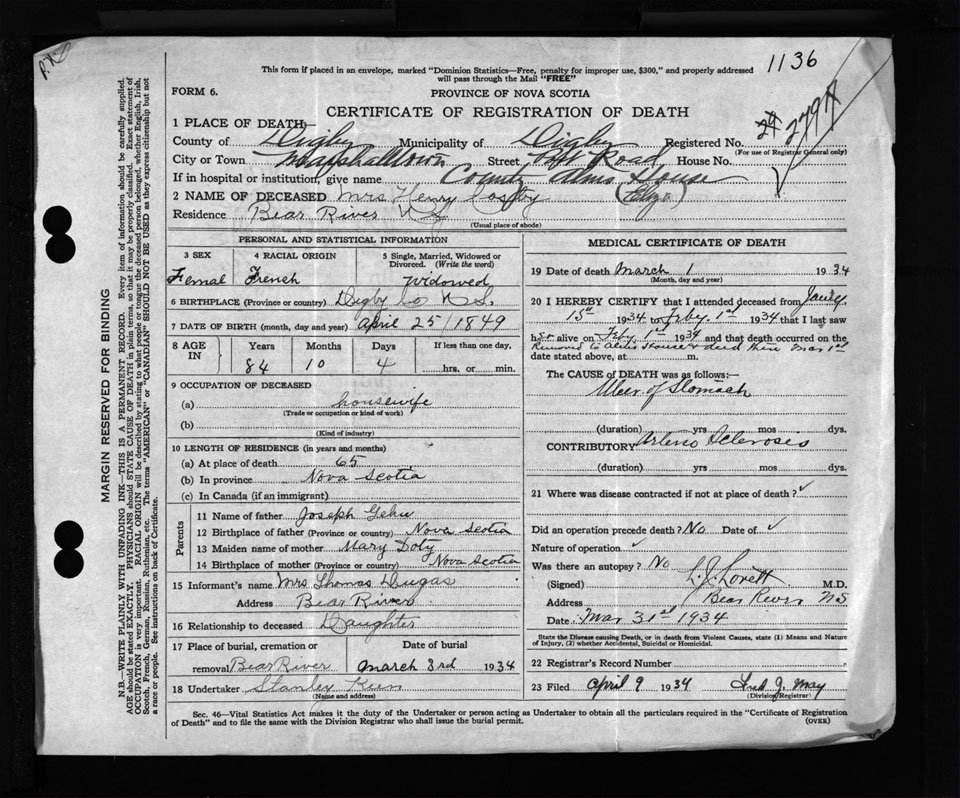 1136
This form if placed in an envelope, marked "Dominion Statistics—Free, penalty for improper use, $300," and properly addressed
will pass through the Mail "FREE"
FORM 6.
PROVINCE OF NOVA SCOTIA
CERTIFICATE OF REGISTRATION OF DEATH
1 PLACE OF DEATH—
County of Digby Municipality of Digby Registered No.
(For use of Registrar General only)
City or Town Marshalltown Street Road House No.
If in hospital or institution, give name County Alms House
2 NAME OF DECEASED Mrs Henry (Eliza)
Residence Bear River N S
(Usual place of abode)
PERSONAL AND STATISTICAL INFORMATION
3 SEX 4 RACIAL ORIGIN 5 Single, Married, Widowed or Divorced. (Write the word)
Femal French Widowed
6 BIRTHPLACE (Province or country) Digby Co N.S.
7 DATE OF BIRTH (month, day and year) April 25/1849
8 AGE IN Years Months Days If less than one day.
84 10 4 hrs. or min.
9 OCCUPATION OF DECEASED
(a) housewife
(Trade or occupation or kind of work)
(b)
(Kind of industry)
10 LENGTH OF RESIDENCE (in years and months)
(a) At place of death 65
(b) In province Nova Scotia
(c) In Canada (if an immigrant)
Parents
11 Name of father Joseph
12 Birthplace of father (Province or country) Nova Scotia
13 Maiden name of mother Mary Doty
14 Birthplace of mother (Province or country) Nova Scotia
15 Informant's name Mrs Thomas Dugas
Address Bear River
16 Relationship to deceased Daughter
17 Place of burial, cremation or removal Bear River Date of burial March 3rd 1934
18 Undertaker Stanley
(Name and address)
MEDICAL CERTIFICATE OF DEATH
19 Date of death March 1 1934
(Month, day and year)
20 I HEREBY CERTIFY that I attended deceased from Jany.
15th 1934 to Feby. 1st 1934 that I last saw
her alive on Feby 1st 1934 and that death occurred on the
Removed to Alms House & died there Mar 1st
date stated above, at m.
The CAUSE of DEATH was as follows:—
Ulcer of Stomach
(duration) yrs mos dys.
CONTRIBUTORY Arterio Sclerosis
(duration) yrs mos dys.
21 Where was disease contracted if not at place of death? ✓
Did an operation precede death? No Date of ✓
Nature of operation ✓
Was there an autopsy? No
(Signed) L. J. Lovett M.D.
Address Bear River NS
Date Mar 31st 1934
State the Disease causing Death, or in death from Violent Causes, state (1) Means and Nature
of Injury, (2) whether Accidental, Suicidal or Homicidal.
22 Registrar's Record Number
23 Filed April 9 1934 Fred J. May
(Division Registrar)
Sec. 46—Vital Statistics Act makes it the duty of the Undertaker or person acting as Undertaker to obtain all the particulars required in the "Certificate of Registration
of Death" and to file the same with the Division Registrar who shall issue the burial permit.
(OVER)
MARGIN RESERVED FOR BINDING
N.B.—WRITE PLAINLY WITH UNFADING INK—THIS IS A PERMANENT RECORD. Every item of information should be carefully supplied.
AGE should be stated EXACTLY. PHYSICIANS should STATE CAUSE OF DEATH in plain terms, so that it may be properly classified. Exact statement of
OCCUPATION is very important. RACIAL ORIGIN will be described by stating to what people or tongue the deceased person belonged, whether English, Irish,
Scotch, French, German, Russian, Ruthenian, etc. The terms "AMERICAN" or "CANADIAN" SHOULD NOT BE USED as they express citizenship but not
a race or people. See instructions on back of Certificate.